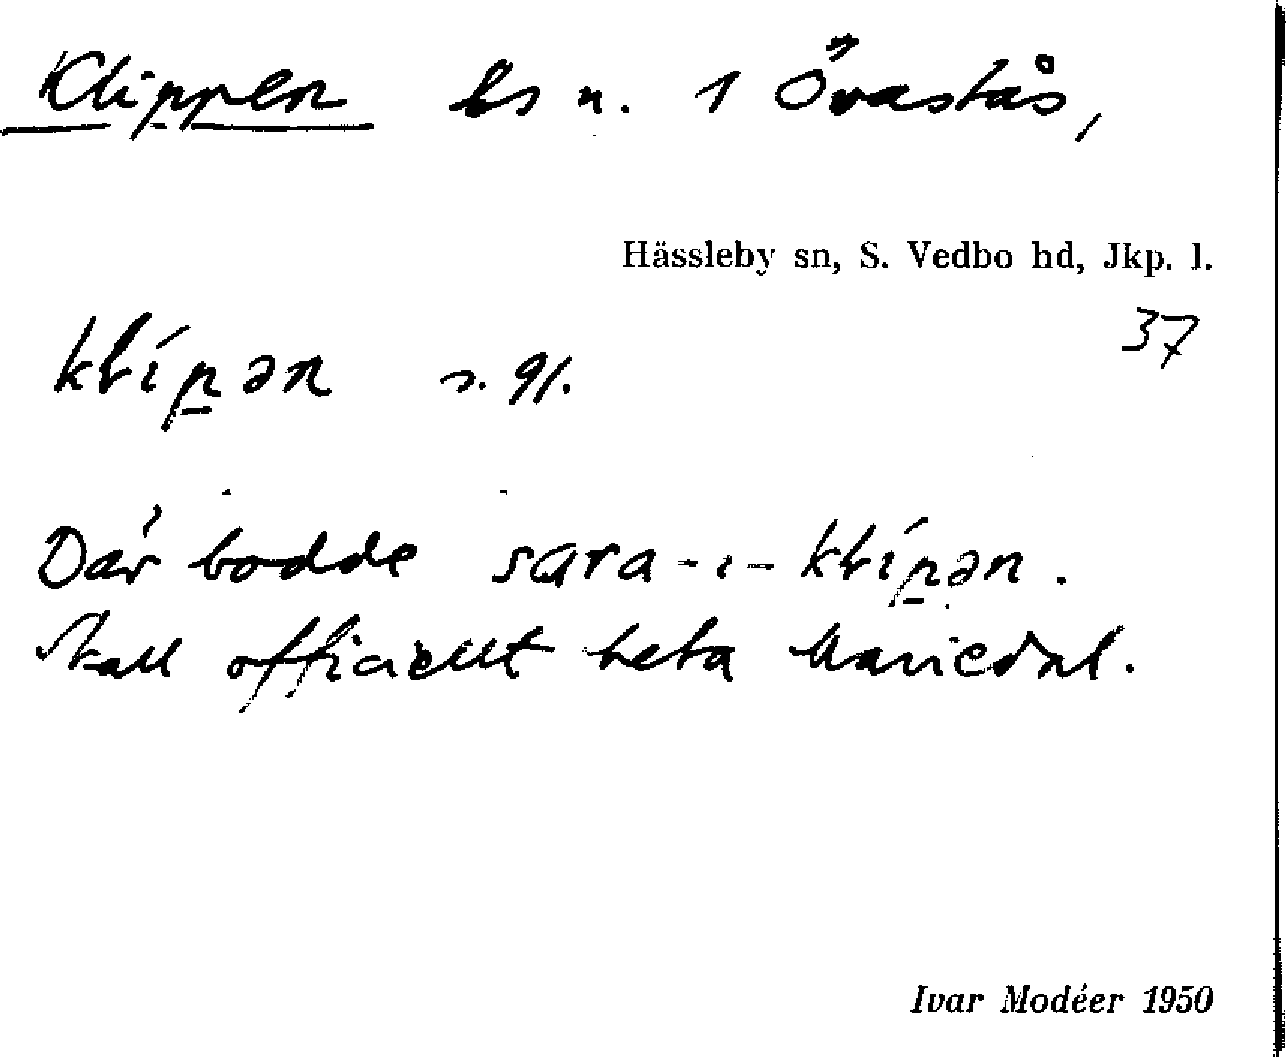 Klippen ls n. 1 Övastås,
Hässleby sn, S. Vedbo hd, Jkp. l.
37
klíp̠ən s. gl.
Där bodde sara-ı-klíp̠ən.
Skall officiellt heta Mariedal.
Ivar Modéer 1950